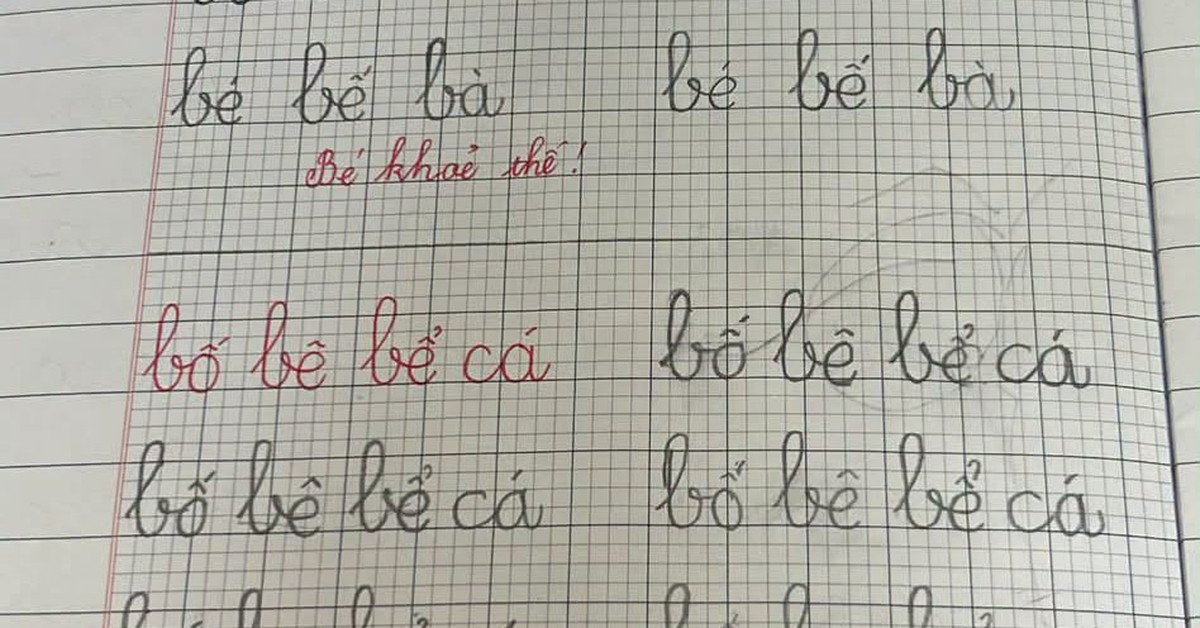 bé bế bà bé bế bà
Bé khoẻ thế!
bố bê bể cá bố bê bể cá
bố bê bể cá bố bê bể cá